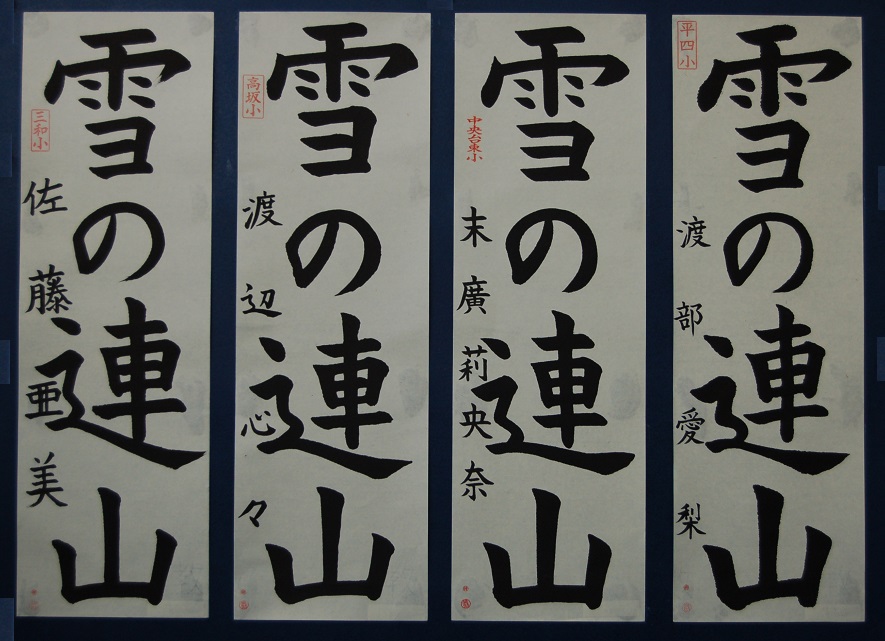 雪の連山
三和小
佐藤亜美
雪の連山
高坂小
渡辺心々
雪の連山
中央台東小
末廣莉央奈
雪の連山
平四小
渡部愛梨